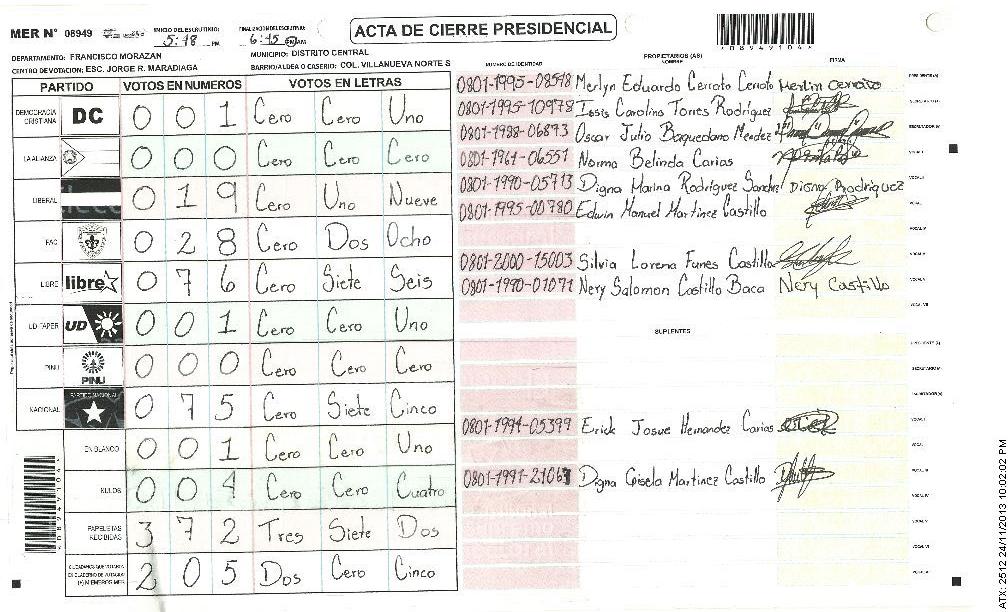 MER N° 08949
INICIO DEL ESCRUTINIO:
5:48 PM
FINALIZACION DEL ESCRUTINIO:
6:45 PM AM
ACTA DE CIERRE PRESIDENCIAL
DEPARTAMENTO: FRANCISCO MORAZAN
MUNICIPIO: DISTRITO CENTRAL
CENTRO DE VOTACION: ESC. JORGE R. MARADIAGA
BARRIO/ALDEA O CASERIO: COL. VILLANUEVA NORTE S
PARTIDO VOTOS EN NUMEROS VOTOS EN LETRAS
DEMOCRACIA CRISTIANA DC 0 0 1 Cero Cero Uno
LA ALIANZA 0 0 0 Cero Cero Cero
LIBERAL 0 1 9 Cero Uno Nueve
PAC 0 2 8 Cero Dos Ocho
LIBRE libre 0 7 6 Cero Siete Seis
UD-FAPER UD 0 0 1 Cero Cero Uno
PINU PINU 0 0 0 Cero Cero Cero
NACIONAL PARTIDO NACIONAL 0 7 5 Cero Siete Cinco
EN BLANCO 0 0 1 Cero Cero Uno
NULOS 0 0 4 Cero Cero Cuatro
PAPELETAS RECIBIDAS 3 7 2 Tres Siete Dos
CIUDADANOS QUE VOTARON EN CUADERNO DE VOTACION (+) MIEMBROS MER 2 0 5 Dos Cero Cinco
PROPIETARIOS (AS)
NUMERO DE IDENTIDAD NOMBRE FIRMA
0801-1995-08598 Merlyn Eduardo Cerrato Cerrato Merlin Cerrato
0801-1995-10978 Issis Carolina Torres Rodríguez
0801-1988-06893 Oscar Julio Baquedano Mendez
0801-1961-06551 Norma Belinda Carias
0801-1990-05713 Digna Marina Rodríguez Sandres Digna Rodriguez
0801-1995-00780 Edwin Manuel Martinez Castillo
0801-2000-15003 Silvia Lorena Funes Castillo
0801-1990-01071 Nery Salomon Castillo Baca Nery Castillo
SUPLENTES
0801-1994-05399 Erick Josue Hernandez Carias
0801-1991-21067 Digna Gisela Martinez Castillo
ATX: 2512 24/11/2013 10:02:02 PM